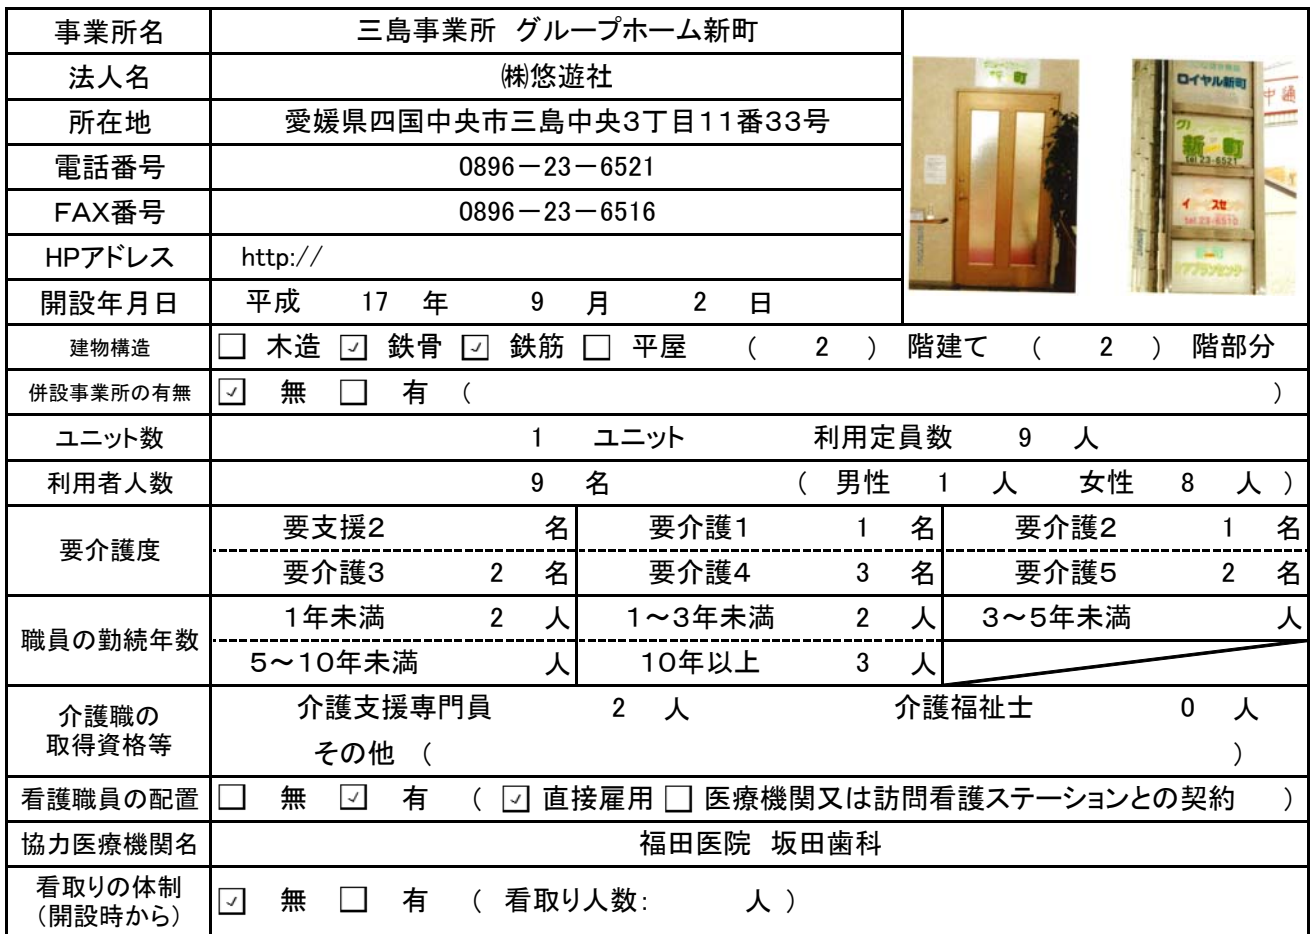 事業所名 三島事業所 グループホーム新町
法人名 ㈱悠遊社
所在地 愛媛県四国中央市三島中央3丁目11番33号
電話番号 0896－23－6521
FAX番号 0896－23－6516
HPアドレス http://
開設年月日 平成 17 年 9 月 2 日
新 町
ロイヤル新町
中通
新 町
tel 23-6521
tel 23-6510
ケアプランセンター
建物構造 □ 木造 ☑ 鉄骨 ☑ 鉄筋 □ 平屋 ( 2 ) 階建て ( 2 ) 階部分
併設事業所の有無 ☑ 無 □ 有 ( )
ユニット数 1 ユニット 利用定員数 9 人
利用者人数 9 名 ( 男性 1 人 女性 8 人 )
要介護度 要支援2 名 要介護1 1 名 要介護2 1 名
要介護3 2 名 要介護4 3 名 要介護5 2 名
職員の勤続年数 1年未満 2 人 1～3年未満 2 人 3～5年未満 人
5～10年未満 人 10年以上 3 人
介護職の
取得資格等 介護支援専門員 2 人 介護福祉士 0 人
その他 ( )
看護職員の配置 □ 無 ☑ 有 ( ☑ 直接雇用 □ 医療機関又は訪問看護ステーションとの契約 )
協力医療機関名 福田医院 坂田歯科
看取りの体制
(開設時から) ☑ 無 □ 有 ( 看取り人数: 人 )